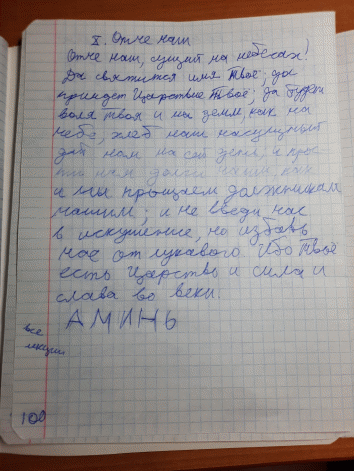 X. Отче наш
Отче наш, сущий на небесах!
Да святится имя твоё; да
приидет Царствие Твоё; да будет
воля твоя и на земли, как на
небе; хлеб наш насущный
дай нам на сей день; и прос-
ти нам долги наши, как
и мы прощаем должникам
нашим; и не введи нас
в искушение, но избавь
нас от лукавого. Ибо Твоё
есть Царство и сила и
слава во веки.
АМИНЬ
все
лекции
100